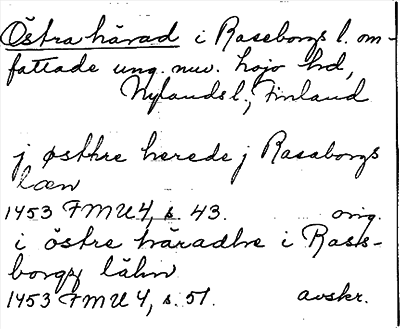 Östra härad i Raseborgs l. om-
fattade ung. nuv. Lojo hd,
Nylands l., Finland
j østhre herede j Rasaborgs
læn
1453 FMU 4, s. 43. orig.
i östre häradhe i Rass-
borgx lähn
1453 FMU 4, s. 51. avskr.